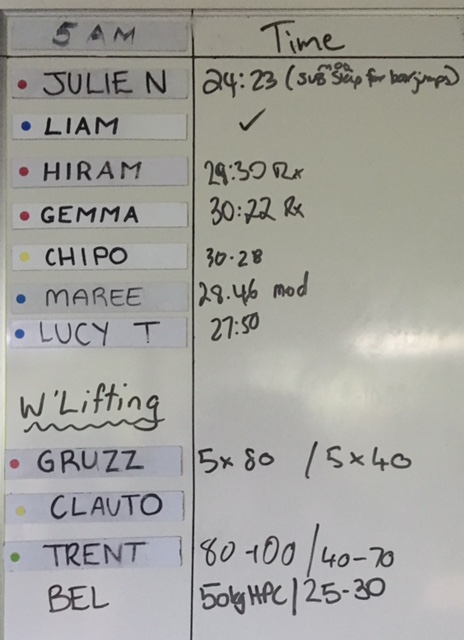 5 AM Time
JULIE N 24:23 (sub skip for bar jumps) mod
LIAM ✓
HIRAM 29:30 Rx
GEMMA 30:22 Rx
CHIPO 30.28
MAREE 28.46 mod
LUCY T 27:50
W'Lifting
GRUZZ 5x80 / 5x40
CLAUTO
TRENT 80-100 / 40-70
BEL 50kg HPC / 25-30